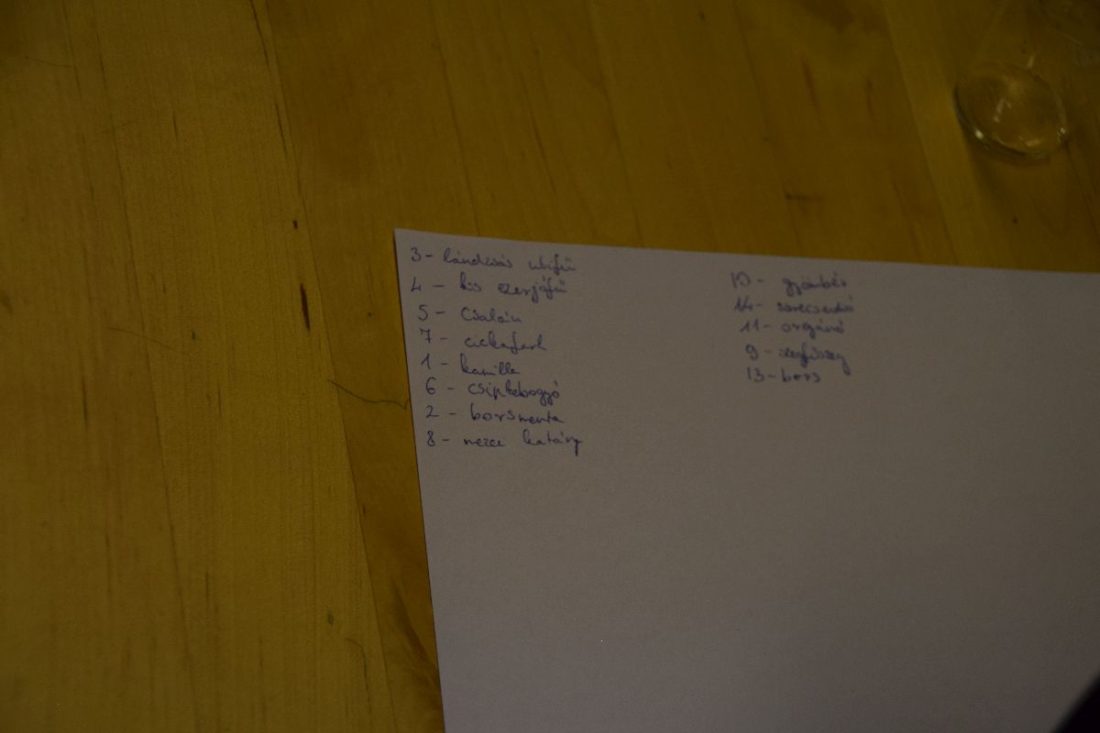 3- lándzsás utifű
4- kis ezerjófű
5- Csalán
7- cickafark
1- kamilla
6- csipkebogyó
2- borsmenta
8- mezei katáng
10- gyömbér
14- szerecsendió
11- 
9- szegfűszeg
13- bors